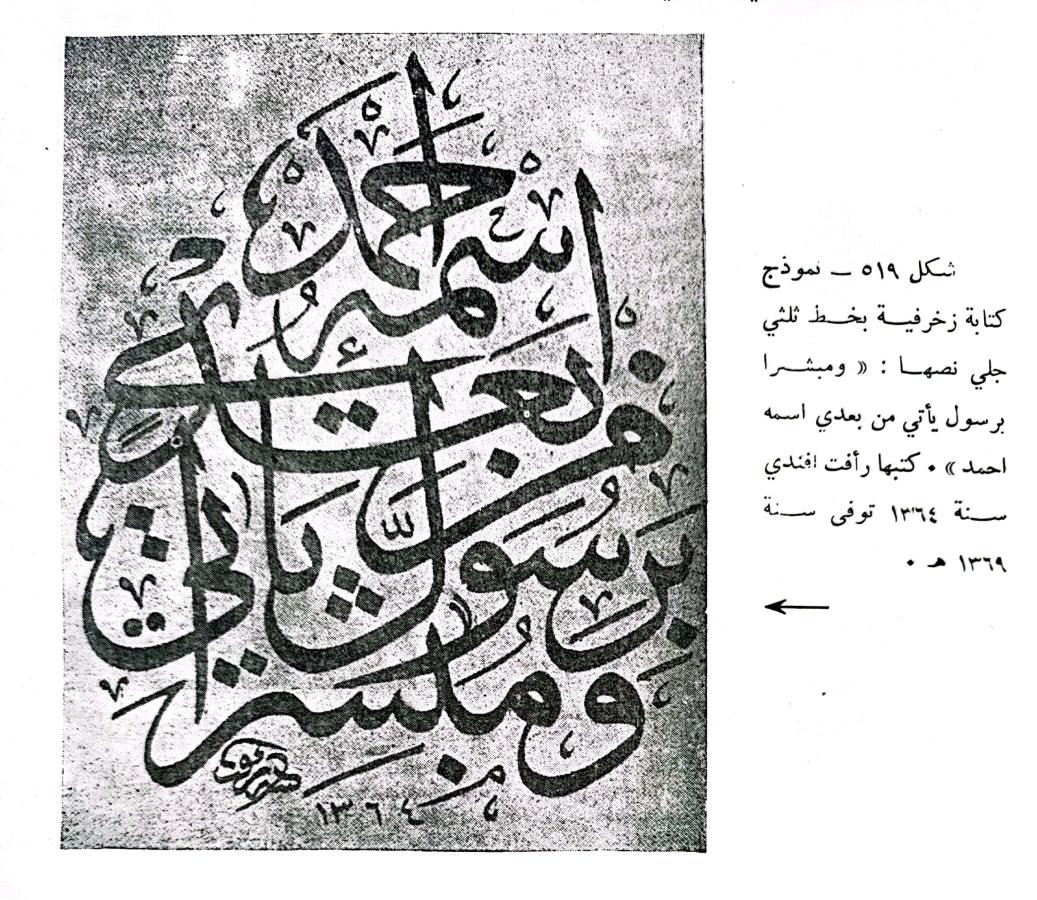 ومبشرا
برسول يأتي
من بعدي
اسمه
احمد
١٣٦٤
شكل ٥١٩ – نموذج
كتابة زخرفية بخط ثلثي
جلي نصها : « ومبشرا
برسول يأتي من بعدي اسمه
احمد » • كتبها رأفت افندي
سنة ١٣٦٤ توفى سنة
١٣٦٩ هـ •